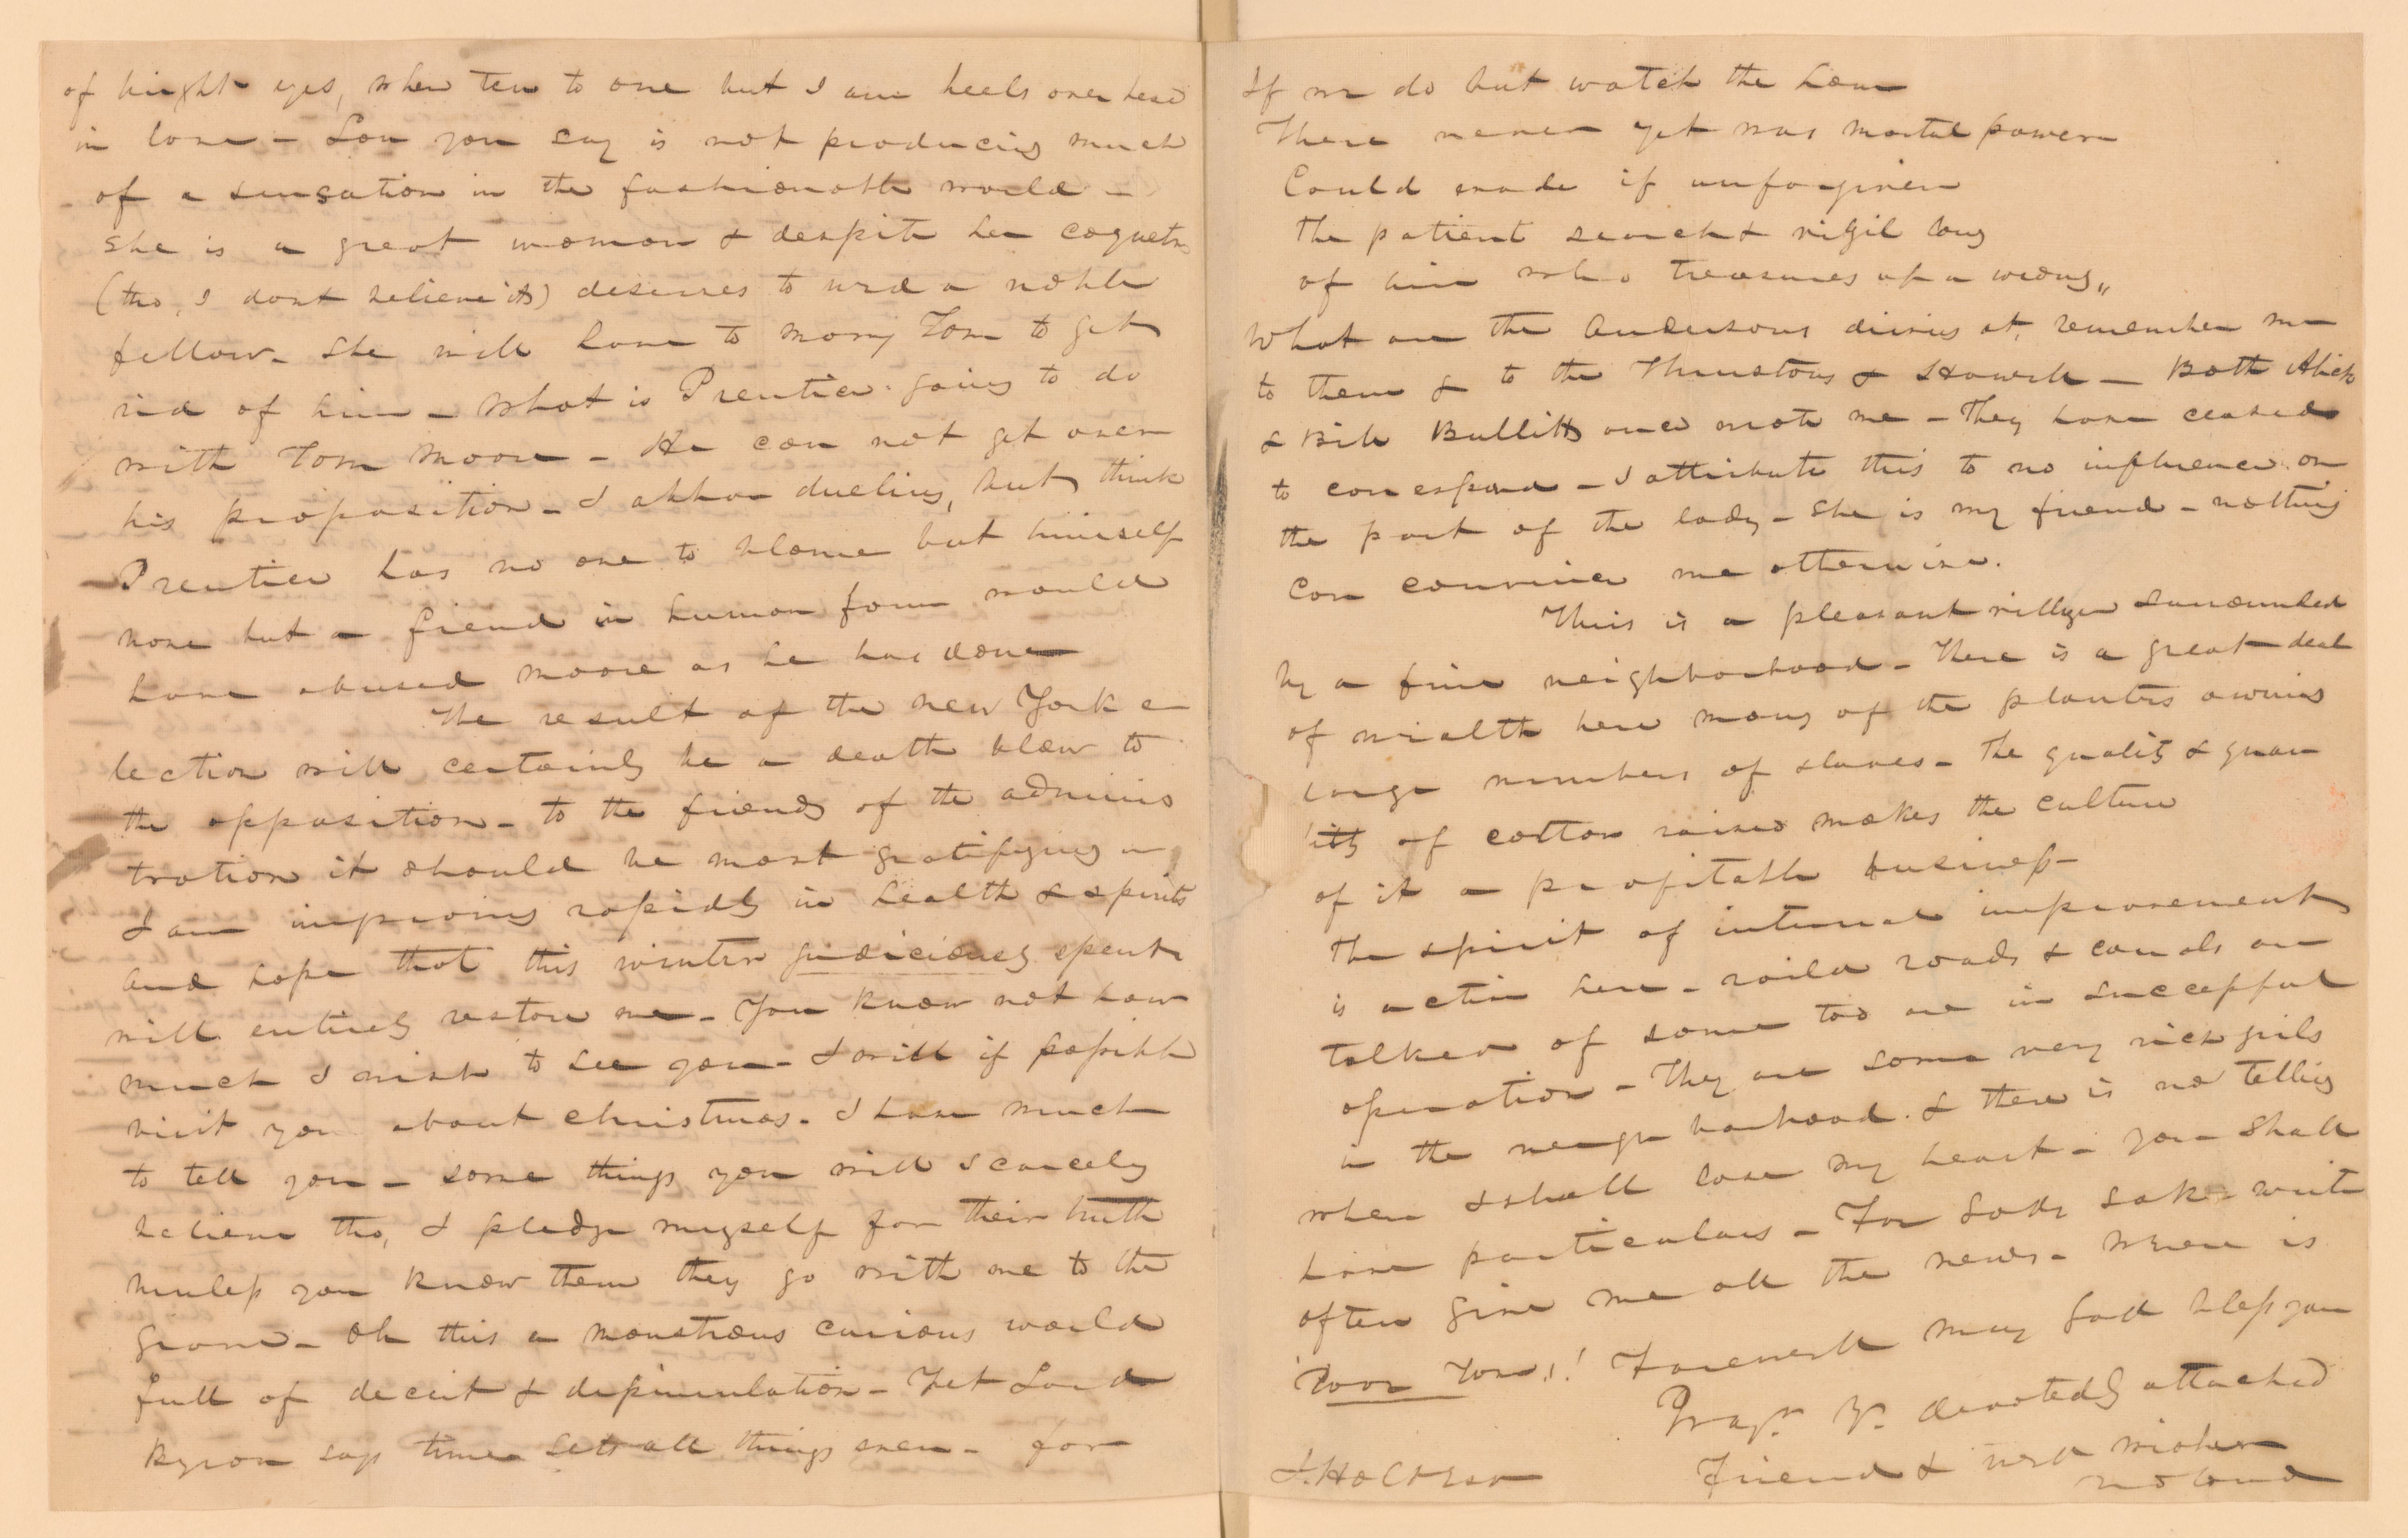 of bright eyes, when ten to one but I am heels over head
in love - Lou you say is not producing much
of a sensation in the fashionable world -
she is a great woman & despite her coquetry
(tho, I dont believe it) deserves to wed a noble
fellow - She will have to marry Tom to get
rid of him - What is Prentice going to do
with Tom Moore - He can not get over
his proposition - I abhor dueling, but think
Prentice has no one to blame but himself
none but a fiend in human form would
have abused Moore as he has done
The result of the New York e-
lection will certainly be a death blow to
the opposition - to the friends of the adminis
tration it should be most gratifying -
I am improving rapidly in health & spirits
and hope that this winter judiciously spent
will entirely restore me - You know not how
much I wish to see you - I will if possible
visit you about christmas - I have much
to tell you - some things you will scarcely
believe tho, I pledge myself for their truth
unless you know them they go with me to the
grave - Oh this a monstrous curious world
full of deceit & dissimulation - Yet Lord
Byron says time sets all things even - for
If we do but watch the hour
There never yet was mortal power
Could evade if unforgiven
The patient search & vigil long
of him who treasures up a wrong"
What are the Andersons driving at, remember me
to them & to the Thrustons & Howell - Both Alick
& Bill Bullitt once wrote me - They have ceased
to correspond - I attribute this to no influence on
the part of the lady - She is my friend - nothing
Can convince me otherwise.
This is a pleasant village surrounded
by a fine neighborhood - There is a great deal
of wealth here many of the planters owning
large numbers of slaves - The quality & quan
tity of cotton raised makes the culture
of it a profitable business -
The spirit of internal improvement
is active here - raild roads & canals are
talked of some too are in successful
operation - They are some very rich girls
in the neighborhood. & there is no telling
when I shall lose my heart - you shall
have particulars - For Gods sake write
often give me all the news - Where is
Poor Tom,! Farewell may God bless you
Yr. devotedly attached
Friend & well wisher
Noland